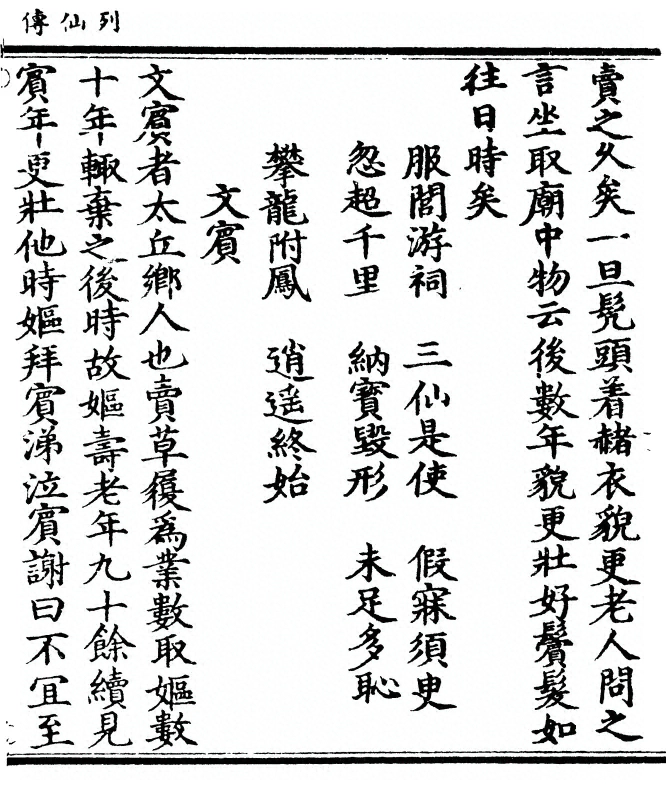 列仙傳
賣之久矣一旦髠頭着赭衣貌更老人問之
言坐取廟中物云後數年貌更壯好鬢髮如
往日時矣
服閭游祠　三仙是使　假寐須臾
忽超千里　納寶毀形　未足多恥
攀龍附鳳　逍遥終始
文賓
文賓者太丘鄉人也賣草履爲業數取嫗數
十年輙棄之後時故嫗壽老年九十餘續見
賓年更壯他時嫗拜賓涕泣賓謝曰不宜至